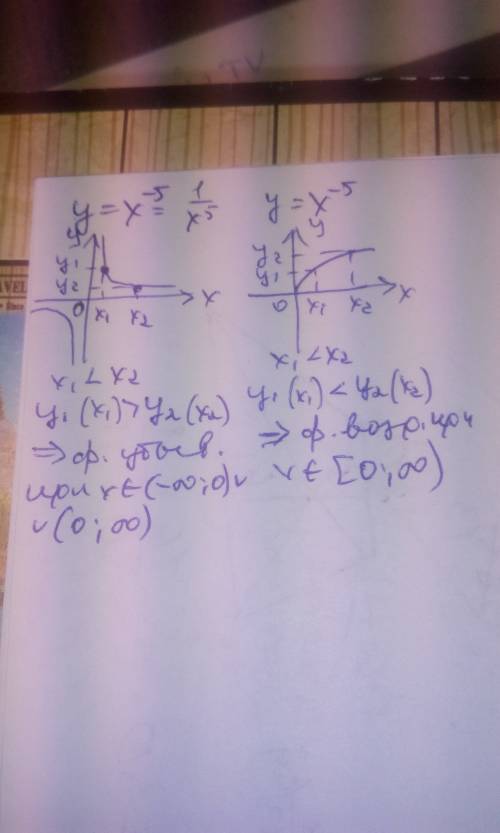 y = x⁻⁵ = 1/x⁵
y
y₁
y₂
0 x₁ x₂ x
x₁ < x₂
y₁(x₁) > y₂(x₂)
⇒ ф. убыв.
при x ∈ (-∞; 0) ∪
∪ (0; ∞)
y = x⁻⁵
y
y₂
y₁
0 x₁ x₂ x
x₁ < x₂
y₁(x₁) < y₂(x₂)
⇒ ф. возр. при
x ∈ [0; ∞)
TV